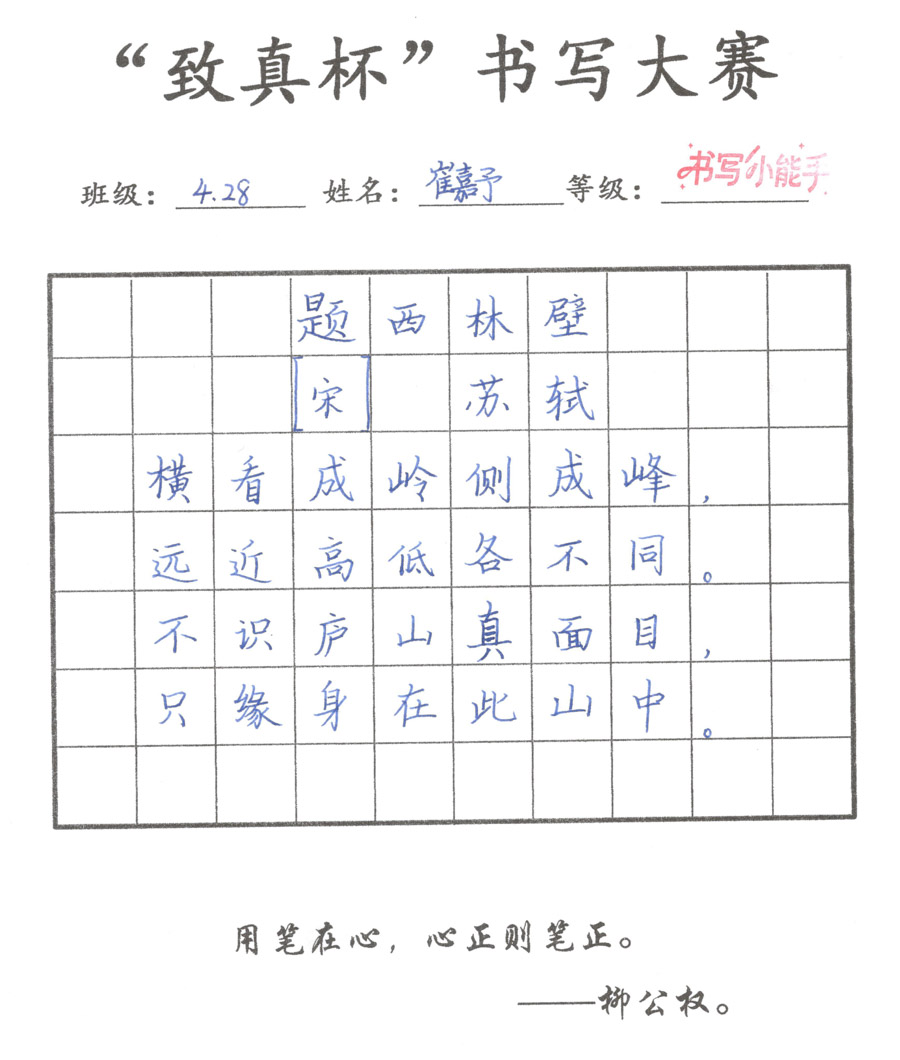 “致真杯”书写大赛
班级：4.28 姓名：崔嘉予 等级：书写小能手
题西林壁
[宋] 苏轼
横看成岭侧成峰，
远近高低各不同。
不识庐山真面目，
只缘身在此山中。
用笔在心，心正则笔正。
——柳公权。